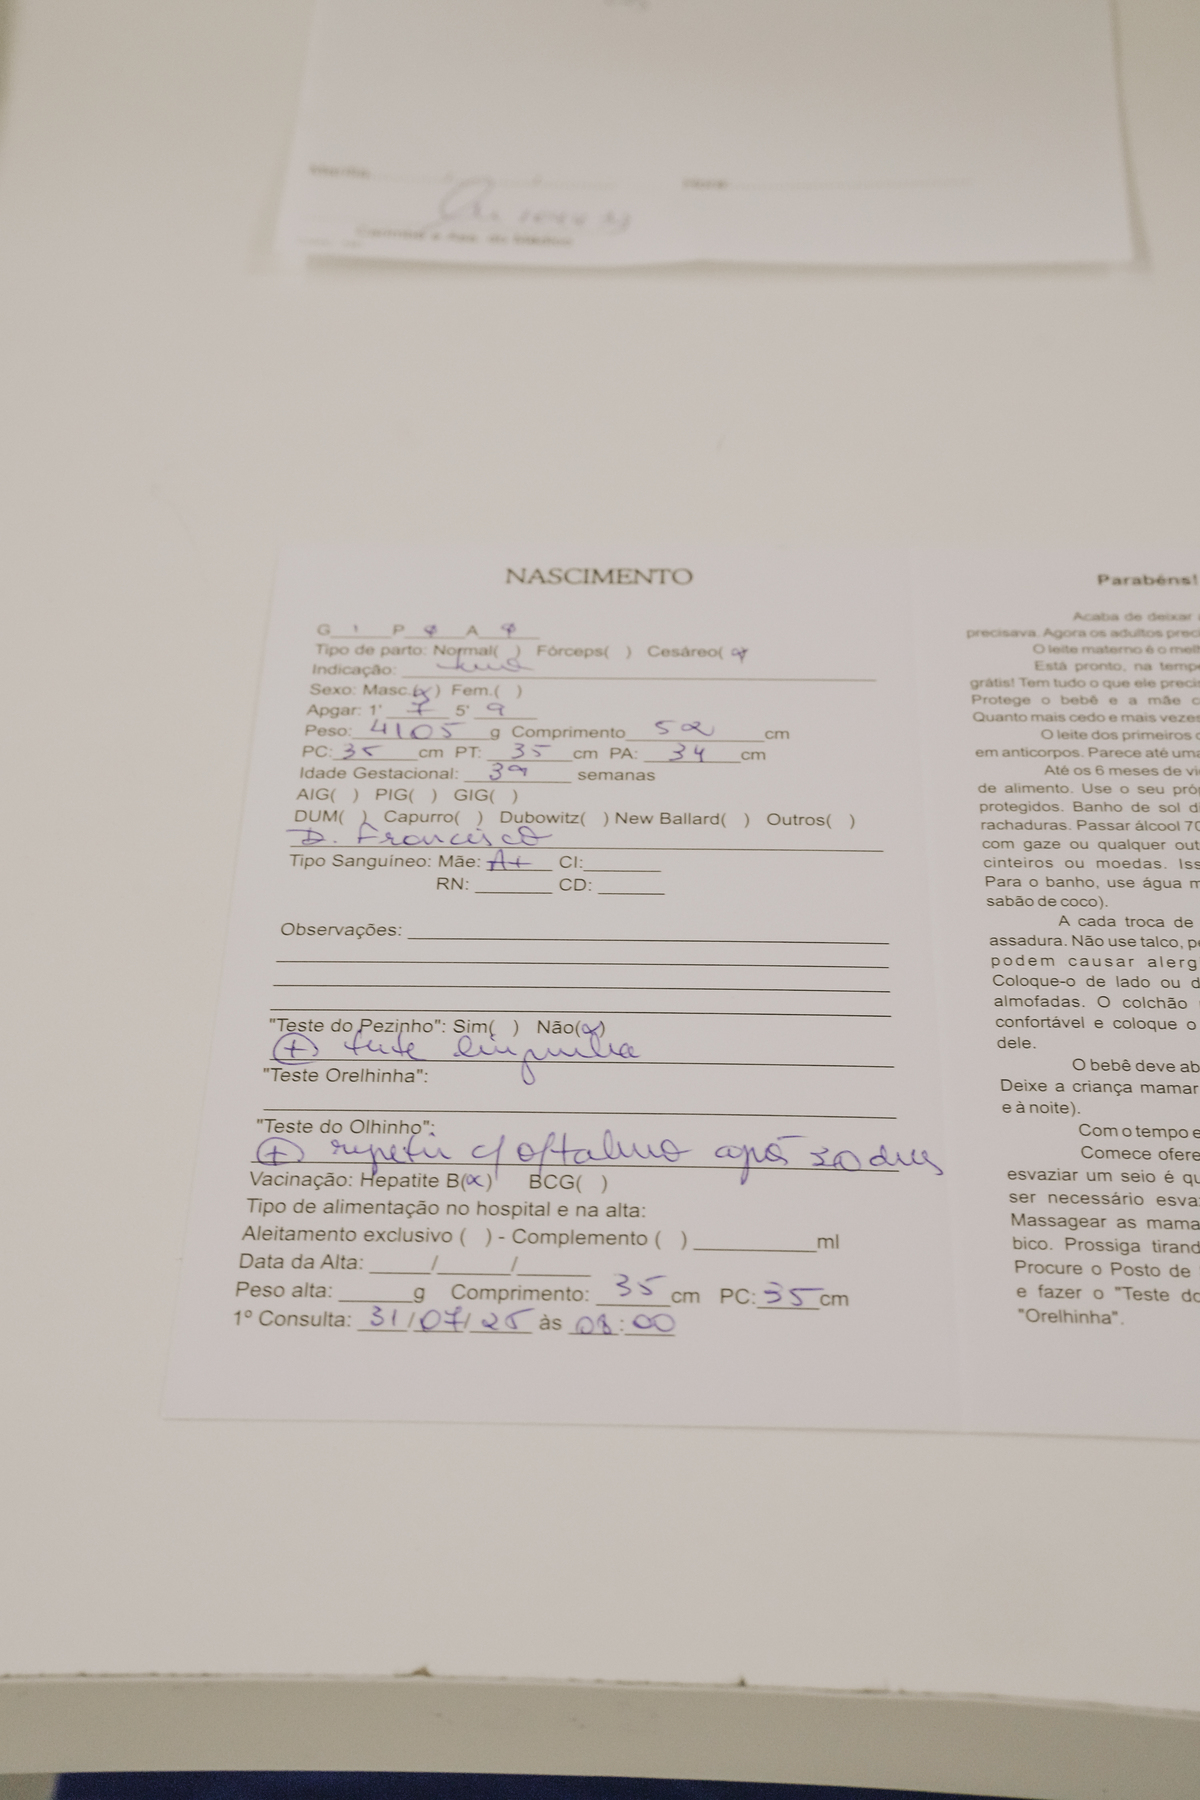 NASCIMENTO
G 1 P 0 A 0
Tipo de parto: Normal( ) Fórceps( ) Cesáreo(x)
Indicação:
Sexo: Masc.(x) Fem.( )
Apgar: 1' 7 5' 9
Peso: 4105 g Comprimento 52 cm
PC: 35 cm PT: 35 cm PA: 34 cm
Idade Gestacional: 39 semanas
AIG( ) PIG( ) GIG( )
DUM( ) Capurro( ) Dubowitz( ) New Ballard( ) Outros( )
D. Francisco
Tipo Sanguíneo: Mãe: A+ CI:
RN: CD:
Observações:
"Teste do Pezinho": Sim( ) Não(x)
(+) teste linguinha
"Teste Orelhinha":
"Teste do Olhinho":
(+) repetir c/ oftalmo após 30 dias
Vacinação: Hepatite B(x) BCG( )
Tipo de alimentação no hospital e na alta:
Aleitamento exclusivo ( ) - Complemento ( ) ml
Data da Alta: / /
Peso alta: g Comprimento: 35 cm PC: 35 cm
1º Consulta: 31/07/25 às 08:00
Parabéns!
Acaba de deixar
precisava. Agora os adultos
O leite materno é o
Está pronto, na
grátis! Tem tudo o que ele
Protege o bebê e a mãe
Quanto mais cedo e mais
O leite dos primeiros
em anticorpos. Parece até
Até os 6 meses de
de alimento. Use o seu
protegidos. Banho de sol
rachaduras. Passar álcool 70
com gaze ou qualquer
cinteiros ou moedas.
Para o banho, use água
sabão de coco).
A cada troca de
assadura. Não use talco,
podem causar
Coloque-o de lado ou
almofadas. O colchão
confortável e coloque o
dele.
O bebê deve
Deixe a criança mamar
e à noite).
Com o tempo e
Comece
esvaziar um seio é
ser necessário
Massagear as
bico. Prossiga
Procure o Posto de
e fazer o "Teste
"Orelhinha".